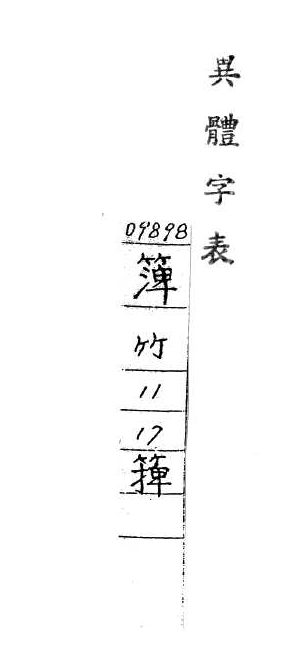 異體字表
09898
竹
11
17
篺